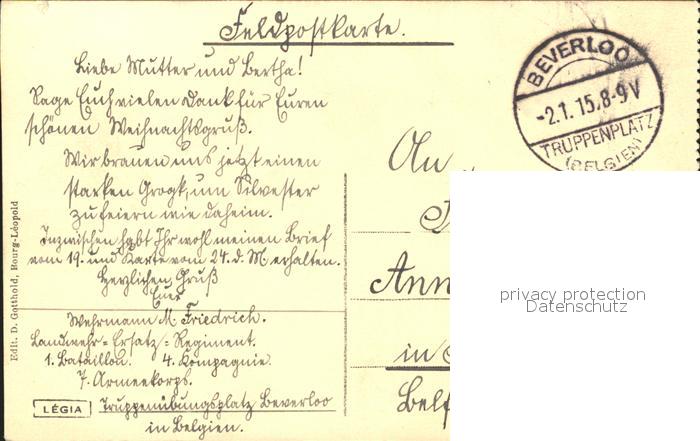 Feldpostkarte.
Liebe Mutter und Bertha!
Sage Euch vielen Dank für Euren
schönen Weihnachtsgruß.
Wir brauen uns jetzt einen
starken Grogk, um Silvester
zu feiern wie daheim.
Inzwischen habt Ihr wohl meinen Brief
vom 19. und Karte vom 24. d. M. erhalten.
Herzlichen Gruß
Euer
Wehrmann M. Friedrich.
Landwehr-Ersatz-Regiment.
1. Bataillon. 4. Kompagnie.
7. Armeekorps.
Truppenübungsplatz Beverloo
in Belgien.
LÉGIA
Edit. D. Gotthold, Bourg-Léopold
BEVERLOO
-2.1.15.8-9V
TRUPPENPLATZ
(BELGIEN)
An
Ann
in
Belf
privacy protection
Datenschutz